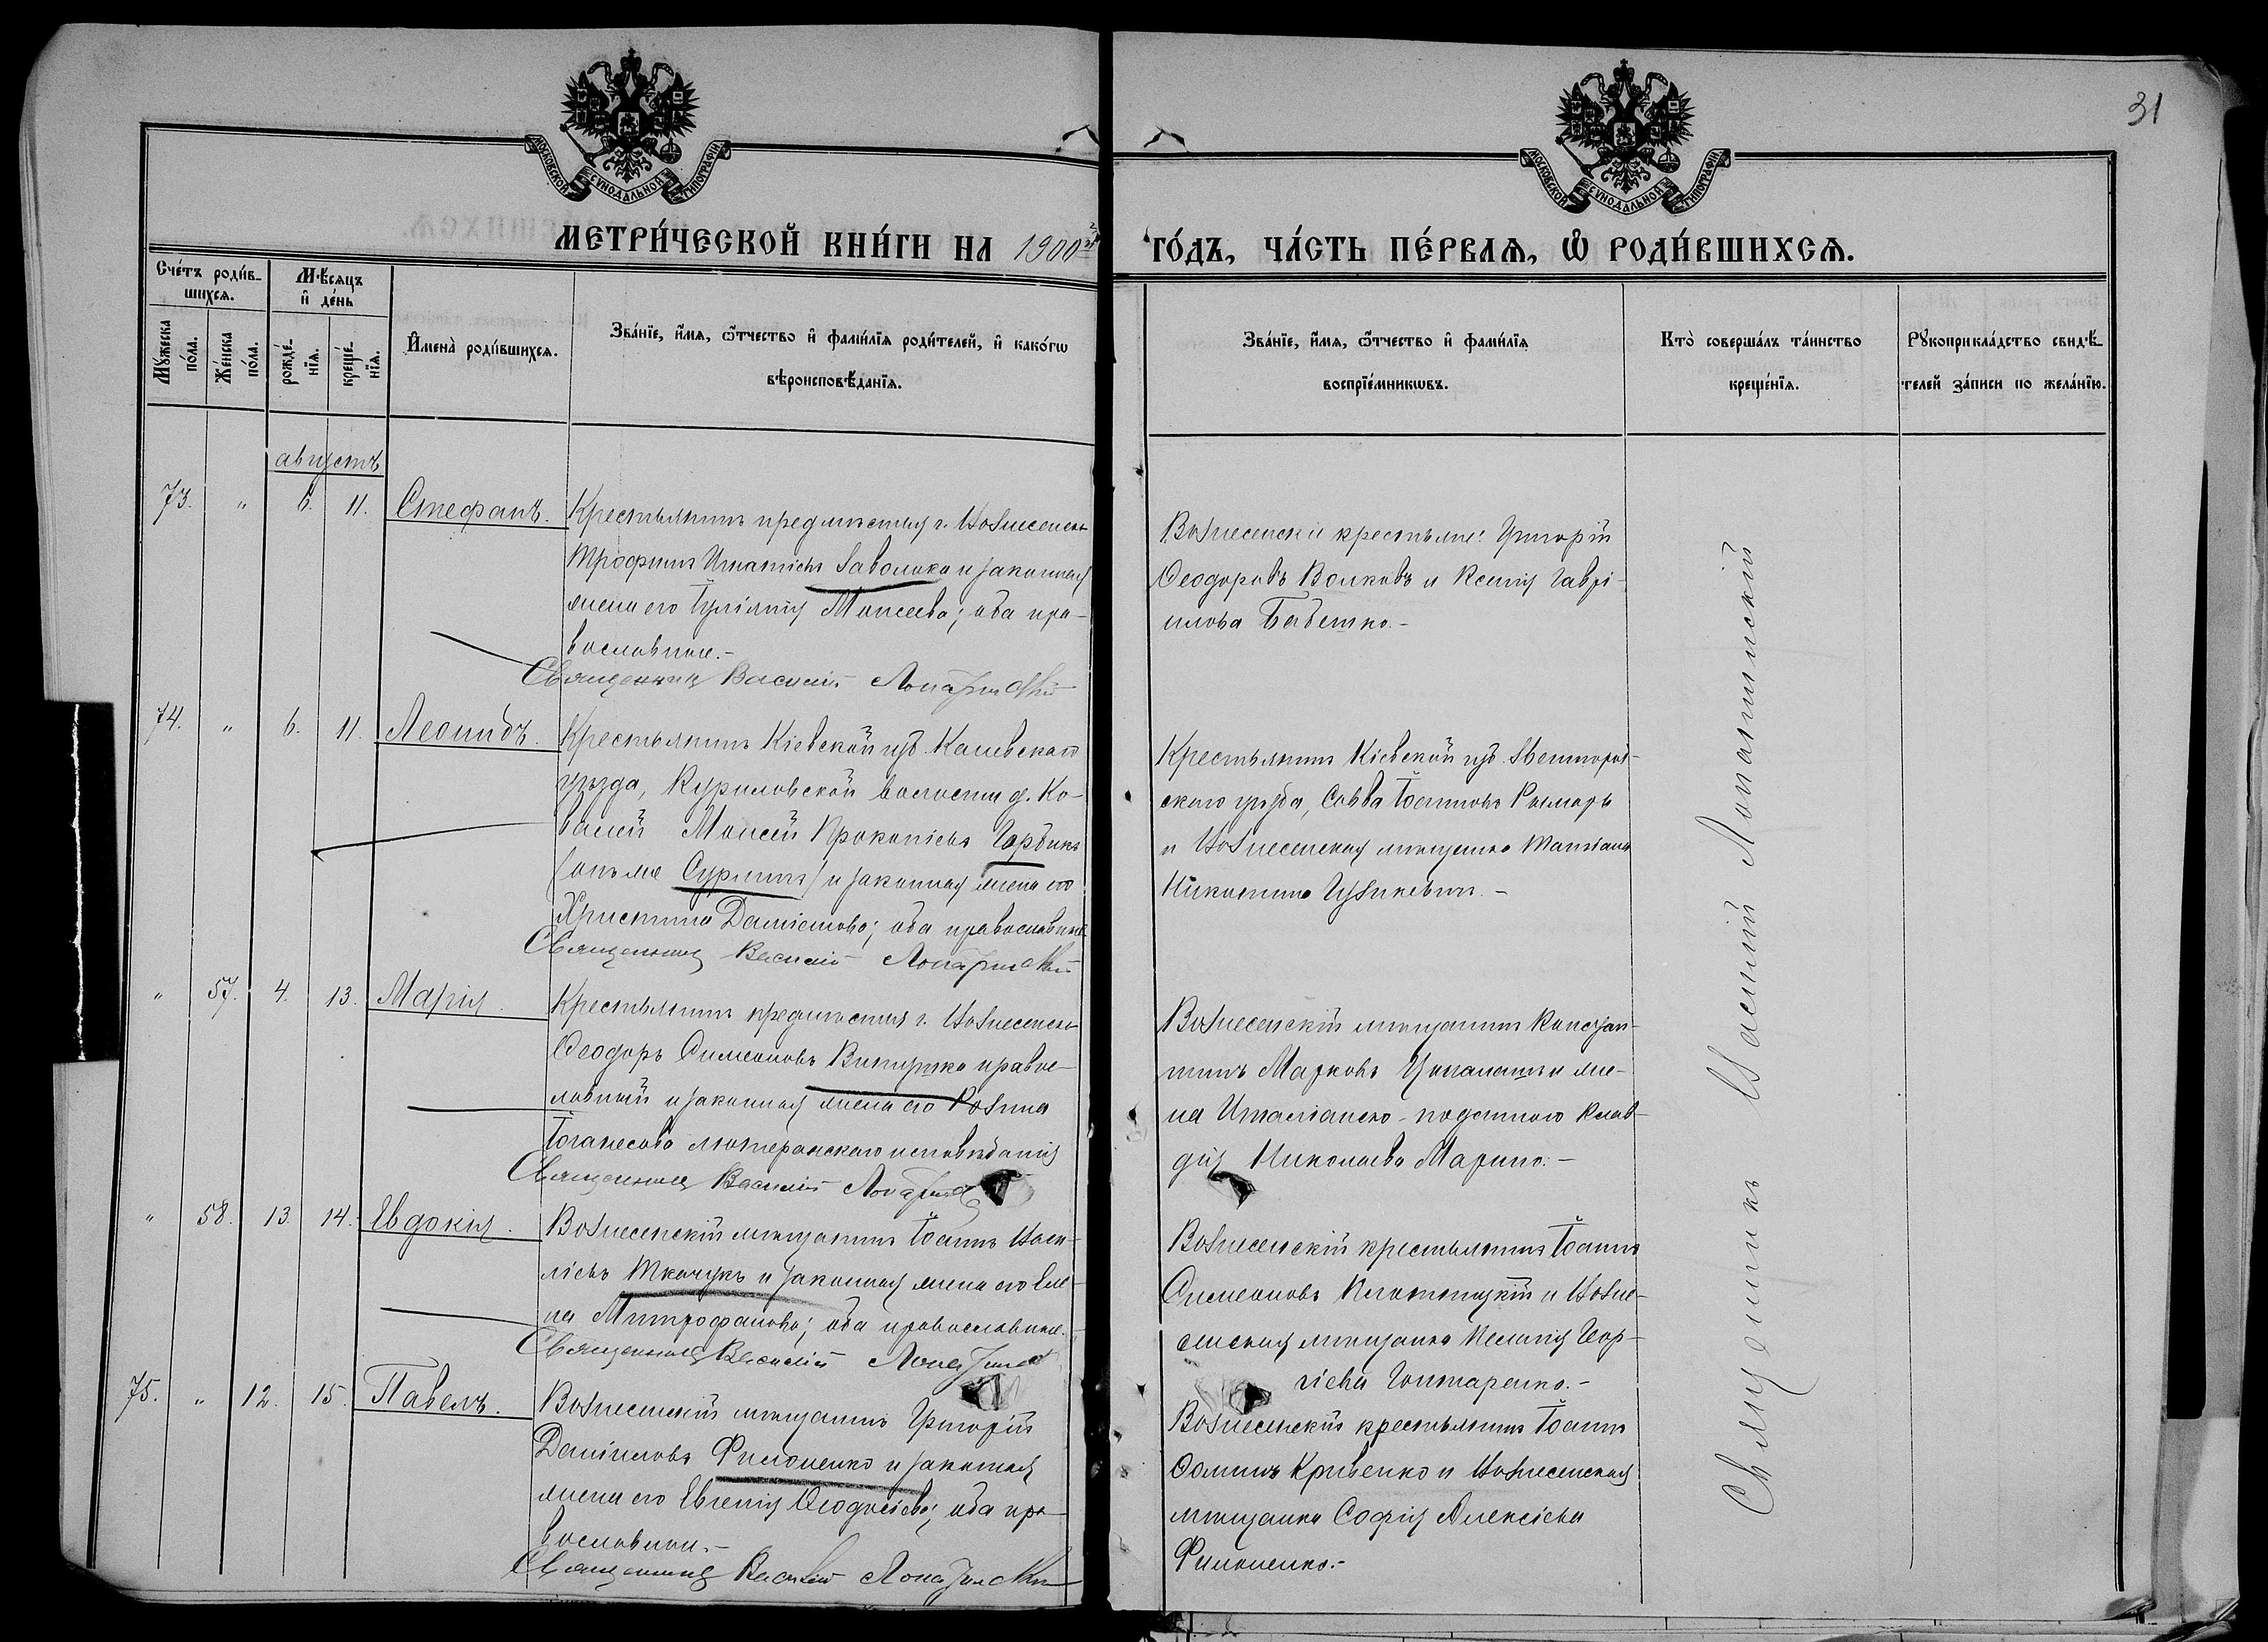 31
МОСКОВСКОЙ СѴНОДАЛЬНОЙ ТИПОГРАФІИ
МОСКОВСКОЙ СѴНОДАЛЬНОЙ ТИПОГРАФІИ
МЕТРИ́ЧЕСКОЙ КНИ́ГИ НА 1900й ГО́ДЪ, ЧА́СТЬ ПЕ́РВАѦ, Ѡ РОДИ́ВШИХСѦ.
Сче́тъ роди́в-
шихсѧ.
Мꙋ́жеска по́ла.
Же́нска по́ла.
Мѣ́сѧцъ
и҆ де́нь
рожде́-
нїѧ.
креще́-
нїѧ.
И҆мена̀ роди́вшихсѧ.
Зва́нїе, и҆́мѧ, ѻ҆́тчество и҆ фами́лїѧ роди́телей, и҆ како́гѡ
вѣроисповѣ́данїѧ.
Зва́нїе, и҆́мѧ, ѻ҆́тчество и҆ фами́лїѧ
воспрїе́мникѡвъ.
Кто̀ соверша́лъ та́инство
креще́нїѧ.
Рꙋкоприкла́дство свидѣ́-
телей за́писи по жела́нїю.
августъ
73. " 6. 11. Стефанъ.
Крестьянинъ предмѣстья г. Вознесенска
Трофимъ Игнатіевъ Заволока и законная
жена его Іуліанія Моисеева; оба пра-
вославные.-
Священникъ Василій Лопатинскій
Вознесенскіе крестьяне: Григорій
Ѳеодоровъ Волковъ и Ксенія Гаврі-
илова Бабешко.-
74. " 6. 11. Леонидъ.
Крестьянинъ Кіевской губ. Каневскаго
уѣзда, Куриловской волости д. Ко-
валей Моисей Прокопіевъ Горбикъ
(онъ же Сурминъ) и законная жена его
Христина Даніилова; оба православные
Священникъ Василій Лопатинскій
Крестьянинъ Кіевской губ. Звенигород-
скаго уѣзда, Савва Іоанновъ Рымарь
и Вознесенская мѣщанка Татіана
Никитина -
" 57. 4. 13. Марія.
Крестьянинъ предмѣстья г. Вознесенска
Ѳеодоръ Симеоновъ православ-
ловный и законная жена его Розина
Іоганесова лютеранскаго исповѣданія
Священникъ Василій Лопатинскій
Вознесенскій мѣщанинъ Констан-
тинъ Марковъ и же-
на Италіанско-поданнаго Клав-
дія Николаева Марино.-
" 58. 13. 14. Евдокія.
Вознесенскій мѣщанинъ Іоаннъ Васи-
ліевъ Ткачукъ и законная жена его Еле-
на Митрофанова; оба православные.
Священникъ Василій Лопатинскій
Вознесенскій крестьянинъ Іоаннъ
Симеоновъ и Возне-
сенская мѣщанка Пелагія Геор-
гіева Гончаренко.-
75. " 12. 15. Павелъ.
Вознесенскій мѣщанинъ Григорій
Даніиловъ Филоненко и законная
жена его Евгенія Ѳеодосіева; оба пра-
вославные.-
Священникъ Василій Лопатинскій
Вознесенскій крестьянинъ Іоаннъ
Ѳоминъ Кривенко и Вознесенская
мѣщанка Софія Алексіева
Филоненко.-
Священникъ Василій Лопатинскій